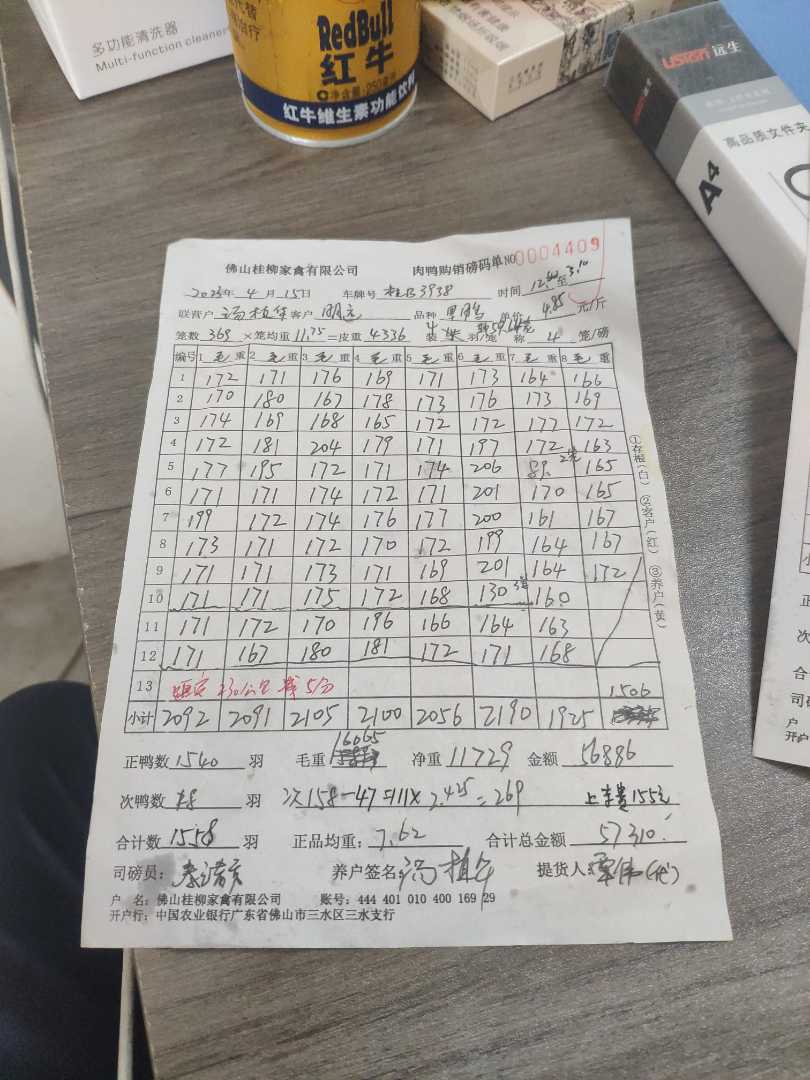 多功能清洗器
Multi-function cleaner
RedBull
红牛
净含量:250毫升
红牛维生素功能饮料
远生
高品质文件夹
A4
佛山桂柳家禽有限公司 肉鸭购销磅码单 NO 0004409
2025年 4 月 15日 车牌号 3938 时间 至 3.10
联营户 客户 明志 品种 黑鸭 单价 4.85 元/斤
笼数 369 ×笼均重 11.75 =皮重 4336 装 羽/笼 称 4 笼/磅
编号 1 毛 重 2 毛 重 3 毛 重 4 毛 重 5 毛 重 6 毛 重 7 毛 重 8 毛 重
1 172 171 176 169 171 173 164 166
2 170 180 167 178 173 176 173 169
3 174 169 168 165 172 172 177 172
4 172 181 204 179 171 197 172 163
5 177 195 172 171 174 206 89 2笼 165
6 171 171 174 172 171 201 170 165
7 199 172 174 176 177 200 161 167
8 173 171 172 170 172 199 164 167
9 171 171 173 171 169 201 164 172
10 171 171 175 172 168 130 3笼 160
11 171 172 170 196 166 164 163
12 171 167 180 181 172 171 168
13 1506
小计 2092 2091 2105 2100 2056 2190 1925
①存根(白) ②客户(红) ③养户(黄)
正鸭数 1540 羽 毛重 16065 净重 11729 金额 56886
次鸭数 羽 次158-47=111× 2.425=269 上车费155元
合计数 1558 羽 正品均重: 7.62 合计总金额 57310
司磅员: 养户签名: 提货人:
户 名: 佛山桂柳家禽有限公司 账号: 444 401 010 400 169 29
开户行: 中国农业银行广东省佛山市三水区三水支行